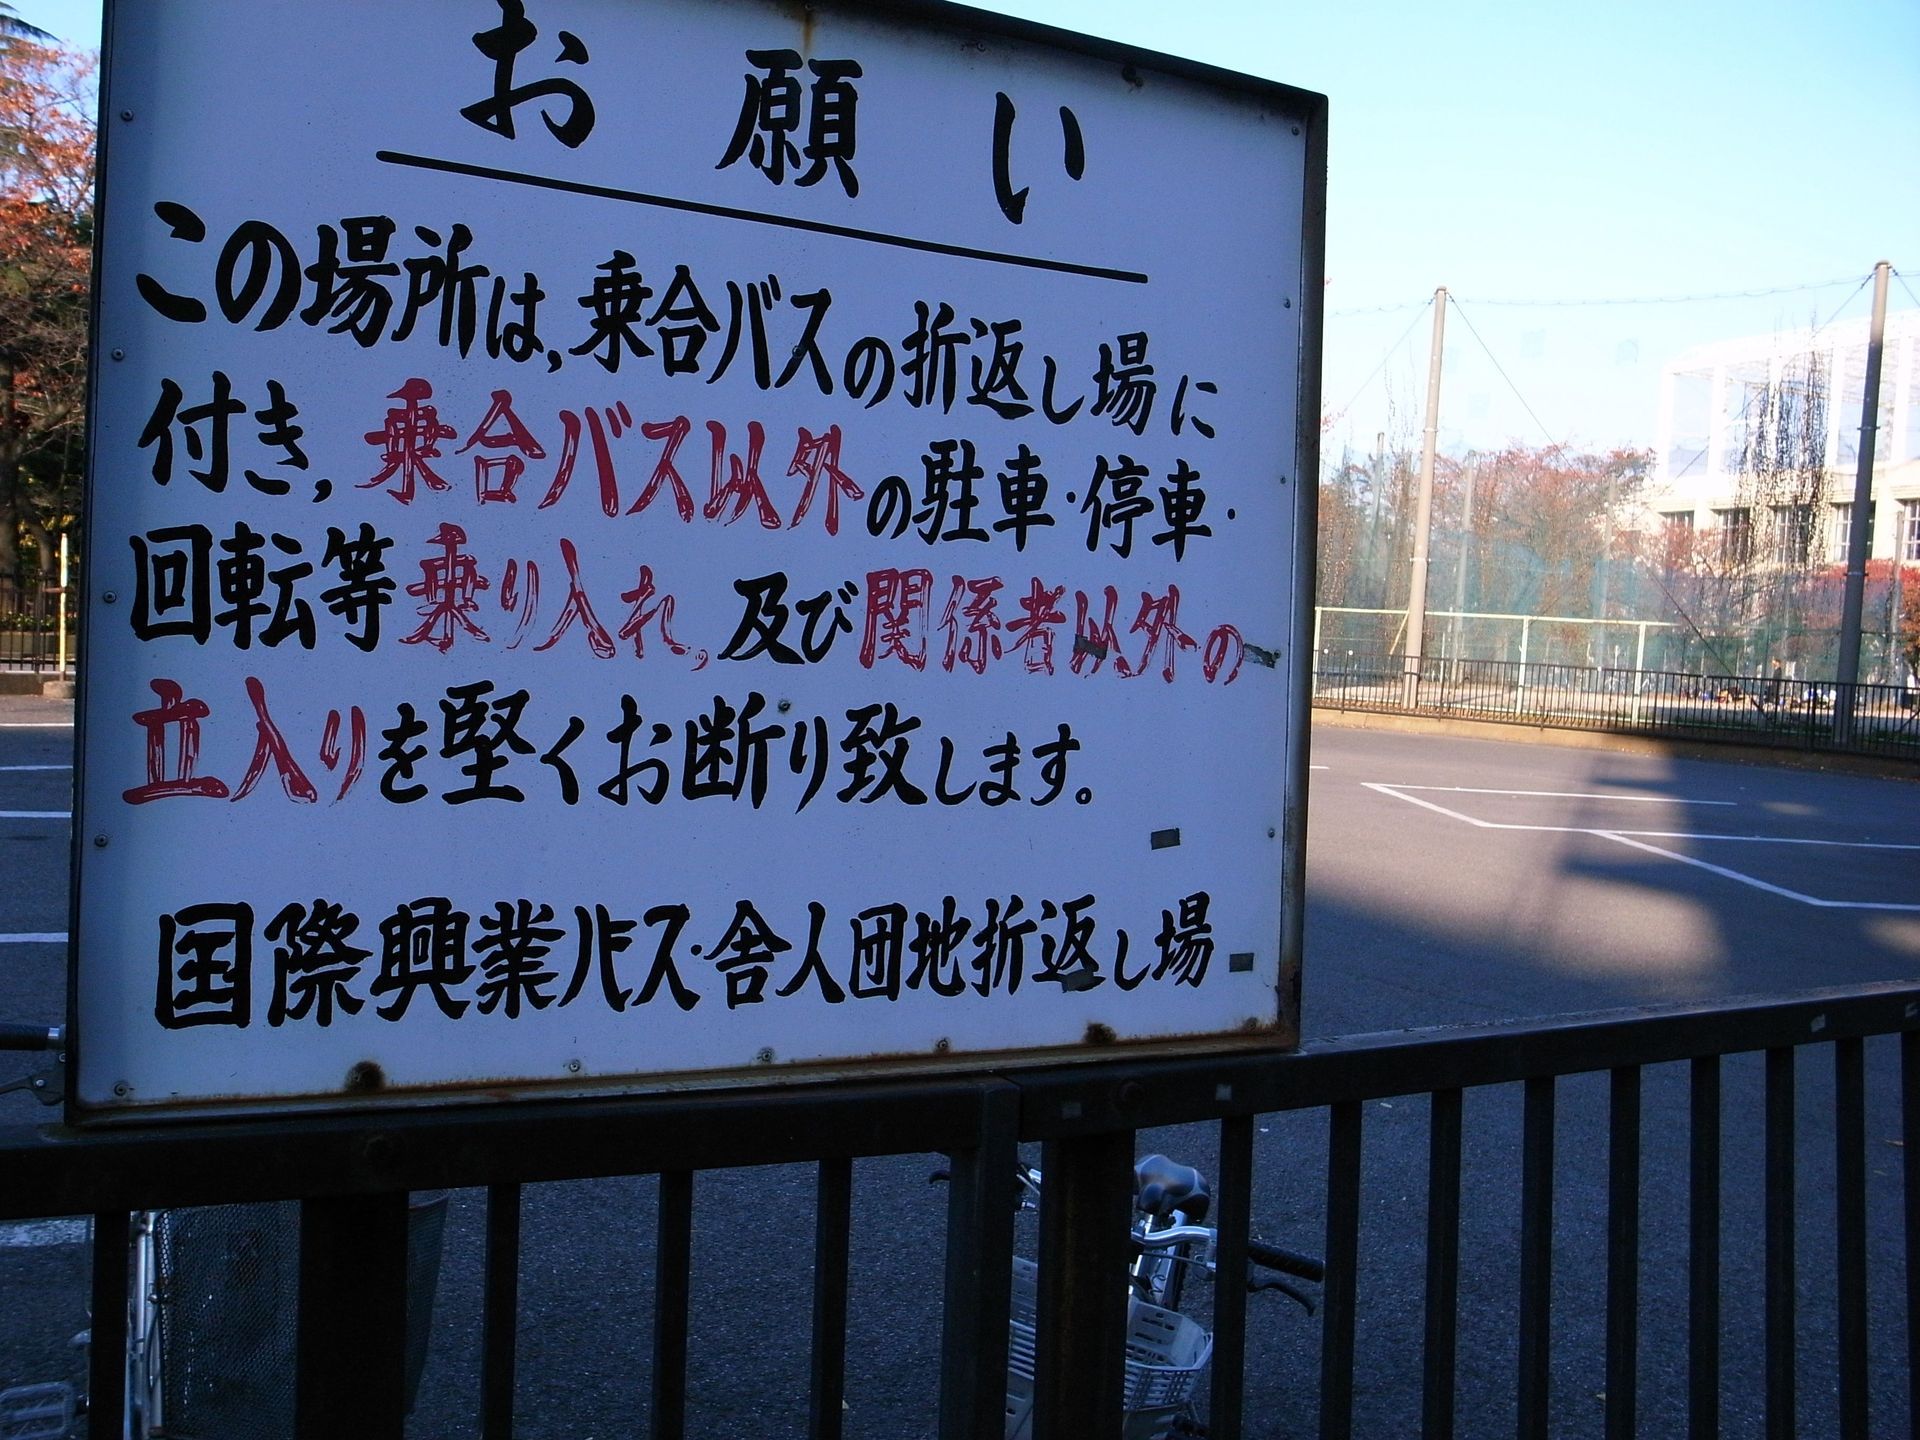 お願い
この場所は,乗合バスの折返し場に
付き,乗合バス以外の駐車・停車・
回転等乗り入れ,及び関係者以外の
立入りを堅くお断り致します。
国際興業バス・舎人団地折返し場